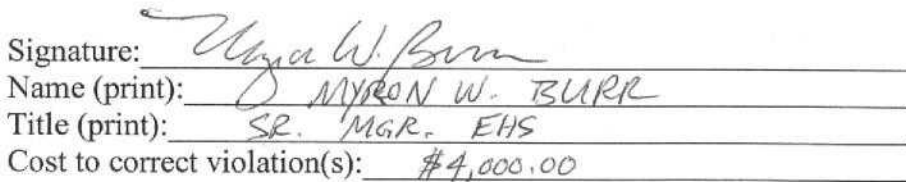 Signature: Myron W. Burr
Name (print): MYRON W. BURR
Title (print): SR. MGR. EHS
Cost to correct violation(s): $4,000.00